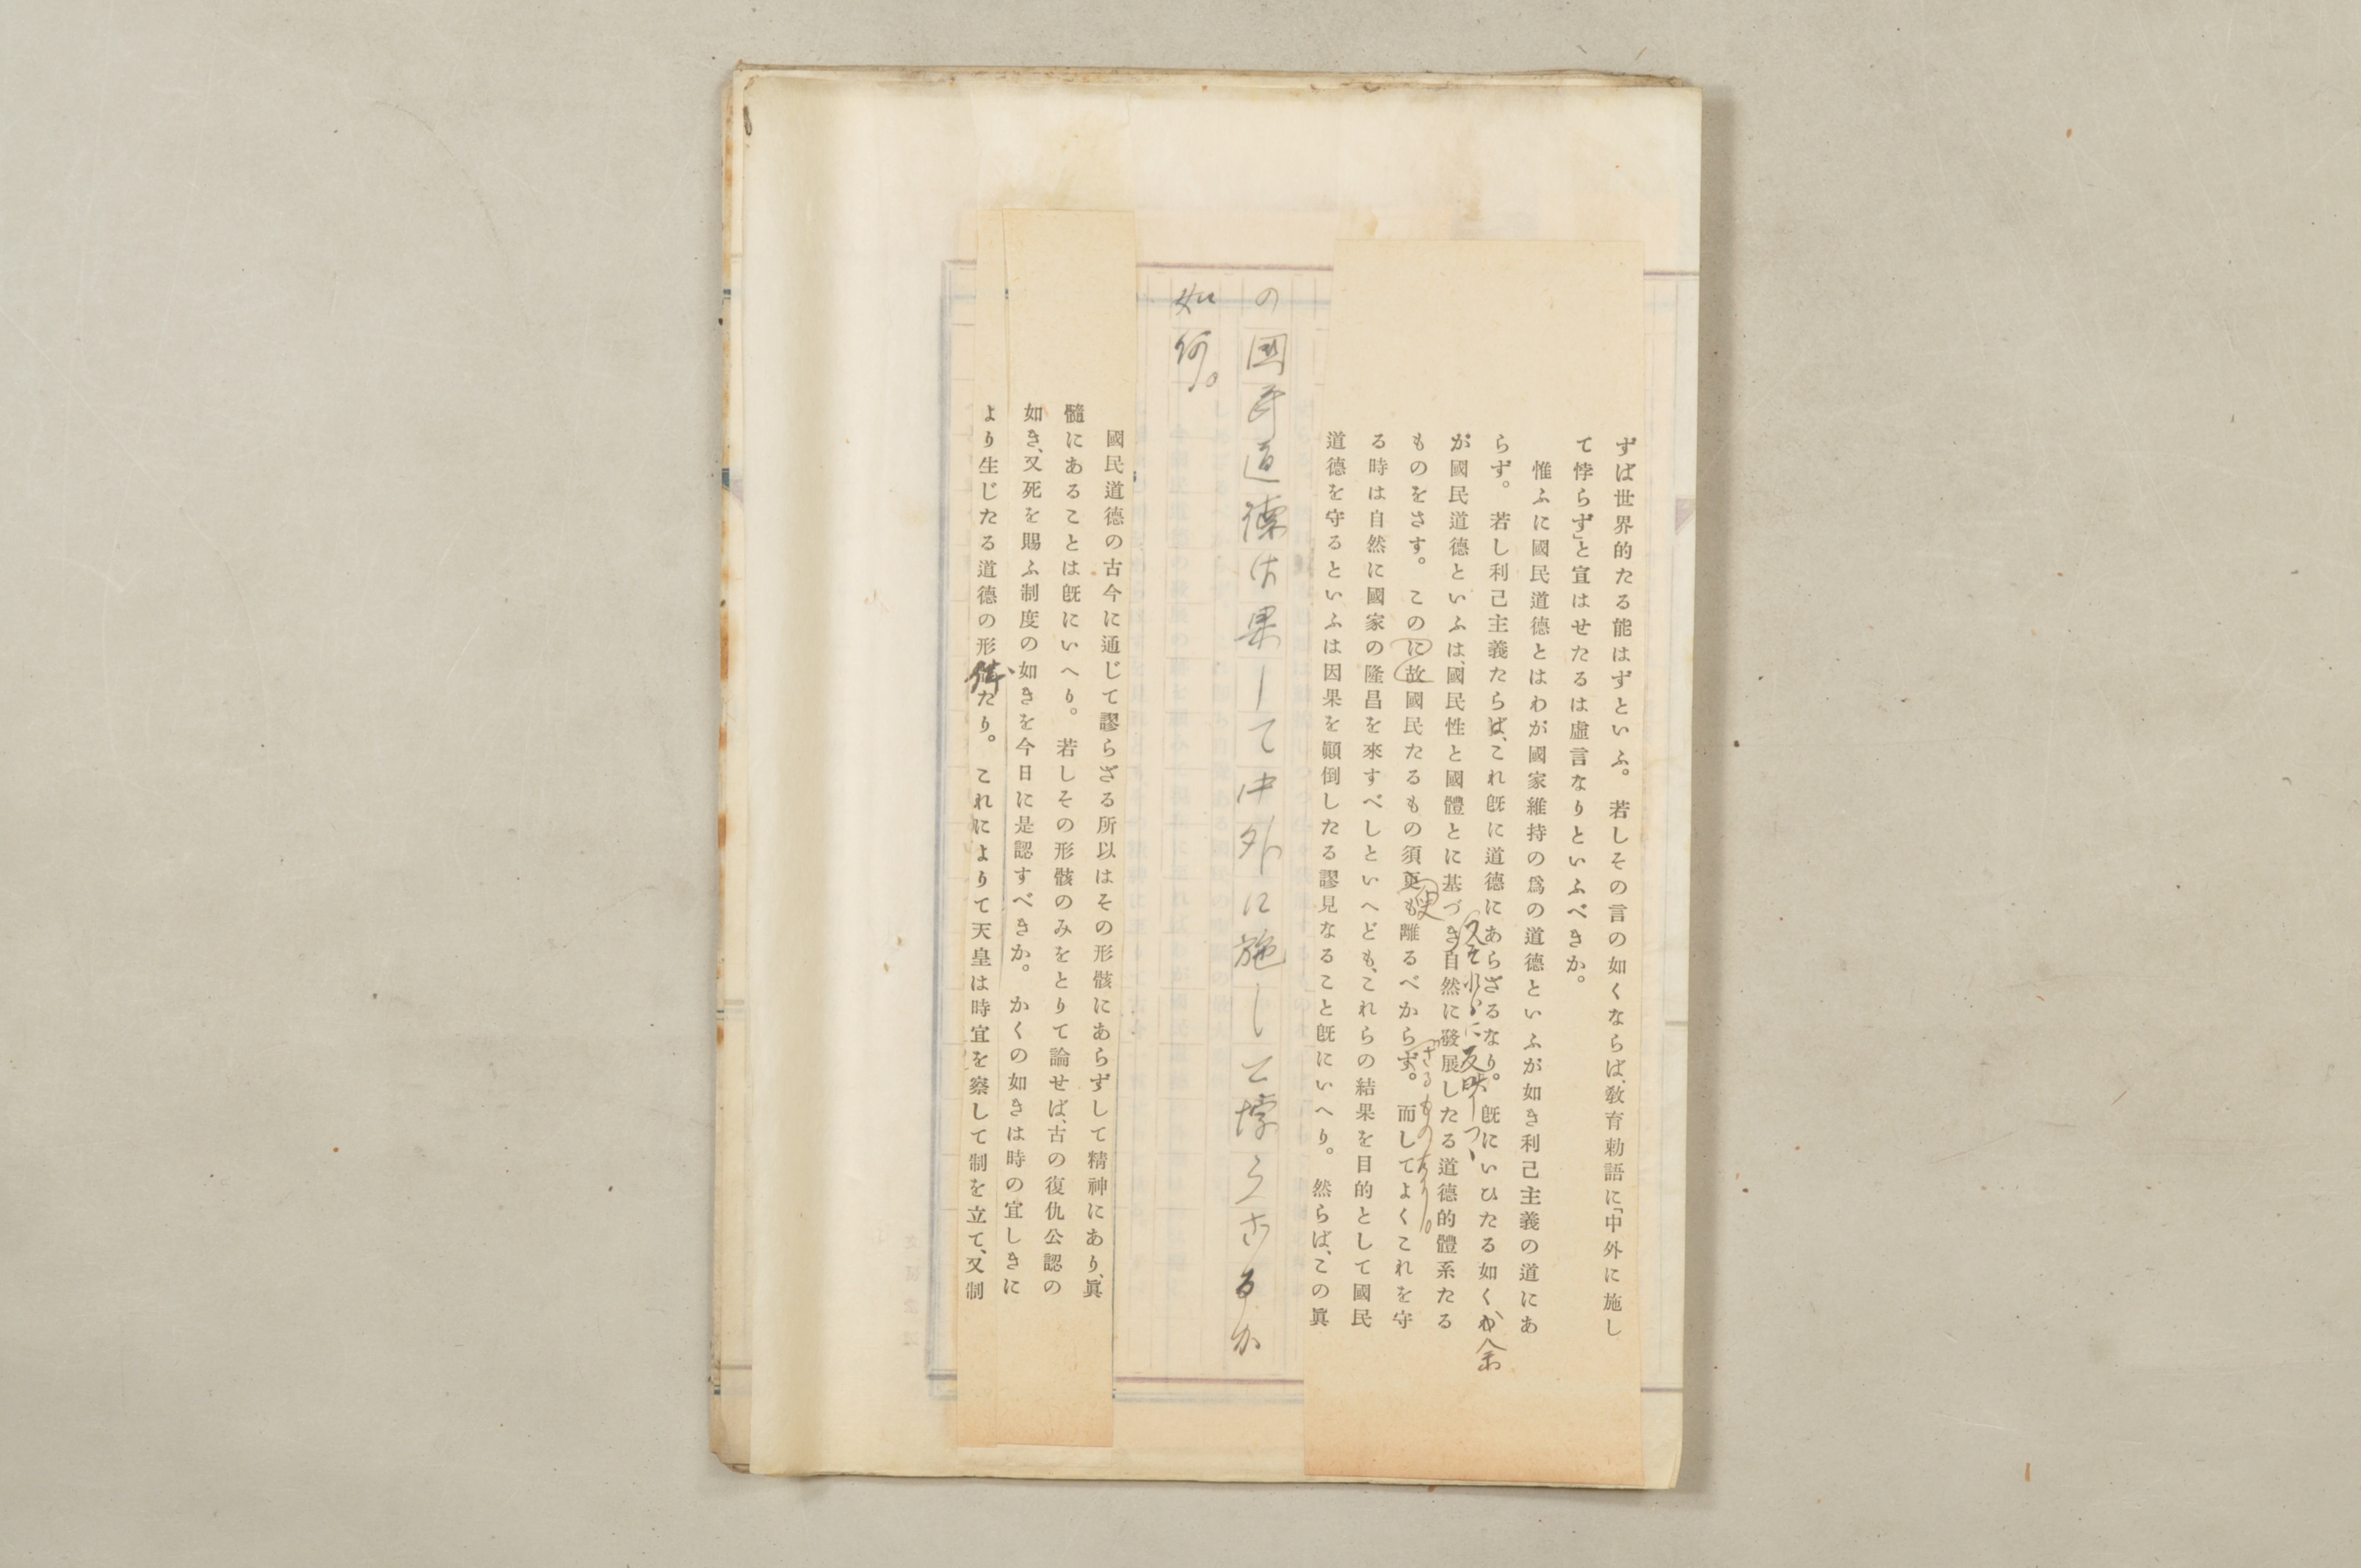 ずば世界的たる能はずといふ。若しその言の如くならば、敎育勅語に「中外に施し
て悖らず」と宣はせたるは虛言なりといふべきか。
惟ふに國民道德とはわが國家維持の爲の道德といふが如き利己主義の道にあ
らず。若し利己主義たらば、これ旣に道德にあらざるなり。旣にいひたる如く、わ
余
が國民道德といふは、國民性と國體とに基づき自然に發展したる道德的體系たる
又それらに反映しつゝ
ものをさす。このに故國民たるもの須更も離るべからず。而してよくこれを守
臾
ざるものなり。
る時は自然に國家の隆昌を來すべしといへども、これらの結果を目的として國民
道德を守るといふは因果を顚倒したる謬見なること旣にいへり。然らば、この眞
の國民道德は果して中外に施して悖らざるか
如何。
國民道德の古今に通じて謬らざる所以はその形骸にあらずして精神にあり、眞
髓にあることは旣にいへり。若しその形骸のみをとりて論せば、古の復仇公認の
如き、又死を賜ふ制度の如きを今日に是認すべきか。かくの如きは時の宜しきに
より生じたる道德の形たり。これによりて天皇は時宜を察して制を立て、又制